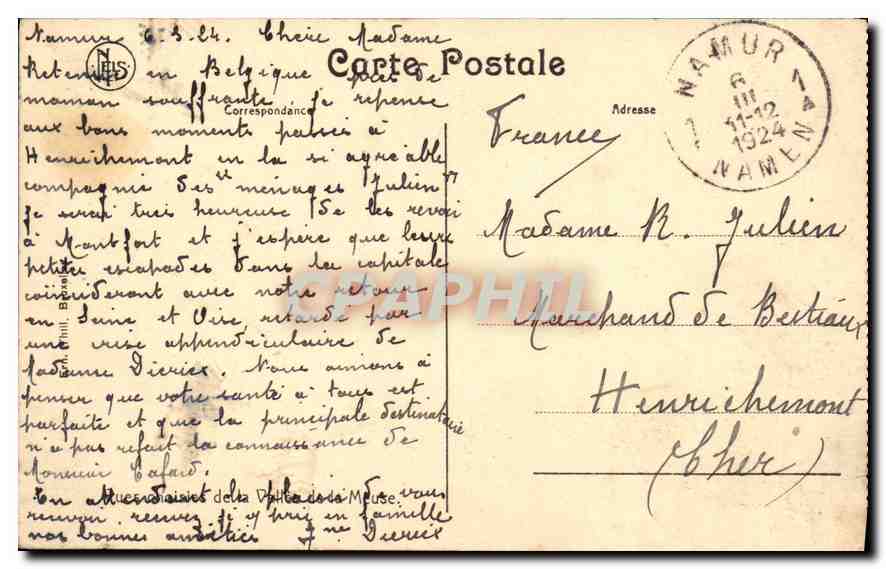 Namur 6.3.24. Chère Madame
Retenue en Belgique près de
maman souffrante je repense
aux bons moments passés à
Henrichemont en la si agréable
compagnie des ménages Julien
je serai très heureuse de les revoir
à Montfort et j'espère que leurs
petites escapades dans la capitale
coïncideront avec notre retour
en Seine et Oise retardé par
une crise appendiculaire de
Madame Dieriex. Nous aimons à
penser que votre santé à tous est
parfaite et que la principale destinataire
n'a pas refait la connaissance de
Monsieur Cafard.
En attendant le plaisir de vous
revoir recevez en famille
nos bonnes amitiés Dieriex
NELS
Carte Postale
Correspondance
Adresse
Vues choisies de la Vallée de la Meuse.
Ern. Thill, Bruxelles
NAMUR 1
6
III
11-12
1924
1 NAMEN
France
Madame R. Julien
Marchand de Bestiaux
Henrichemont
(Cher)
CPAPHIL